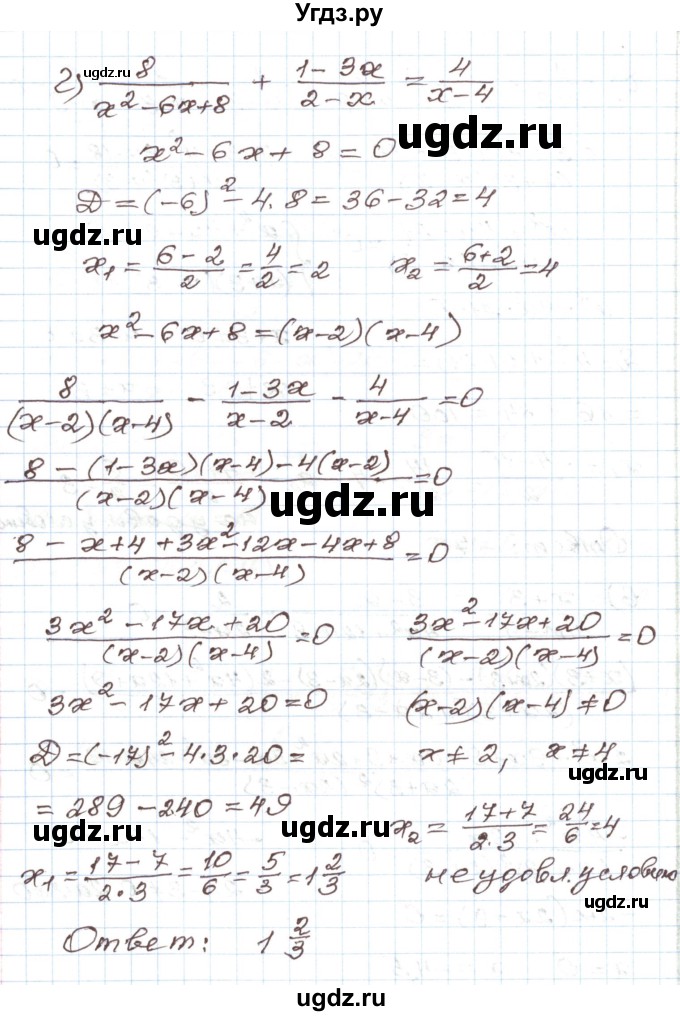 Угдз.ру
г) 8/(x²-6x+8) + (1-3x)/(2-x) = 4/(x-4)
ugdz.ru
ugdz.ru
x²-6x+8=0
Д=(-6)²-4·8=36-32=4
ugdz.ru
x₁=(6-2)/2=4/2=2 x₂=(6+2)/2=4
x²-6x+8=(x-2)(x-4)
8/((x-2)(x-4)) - (1-3x)/(x-2) - 4/(x-4) =0
(8-(1-3x)(x-4)-4(x-2))/((x-2)(x-4))=0
ugdz.ru
(8-x+4+3x²-12x-4x+8)/((x-2)(x-4))=0
(3x²-17x+20)/((x-2)(x-4))=0 (3x²-17x+20)/((x-2)(x-4))=0
3x²-17x+20=0 (x-2)(x-4)≠0
Д=(-17)²-4·3·20= x≠2, x≠4
ugdz.ru
=289-240=49 x₂=(17+7)/(2·3)=24/6=4
ugdz.ru ugdz.ru
x₁=(17-7)/(2·3)=10/6=5/3=1 2/3 не удовл. условию
ugdz.ru
Ответ: 1 2/3
ugdz.ru